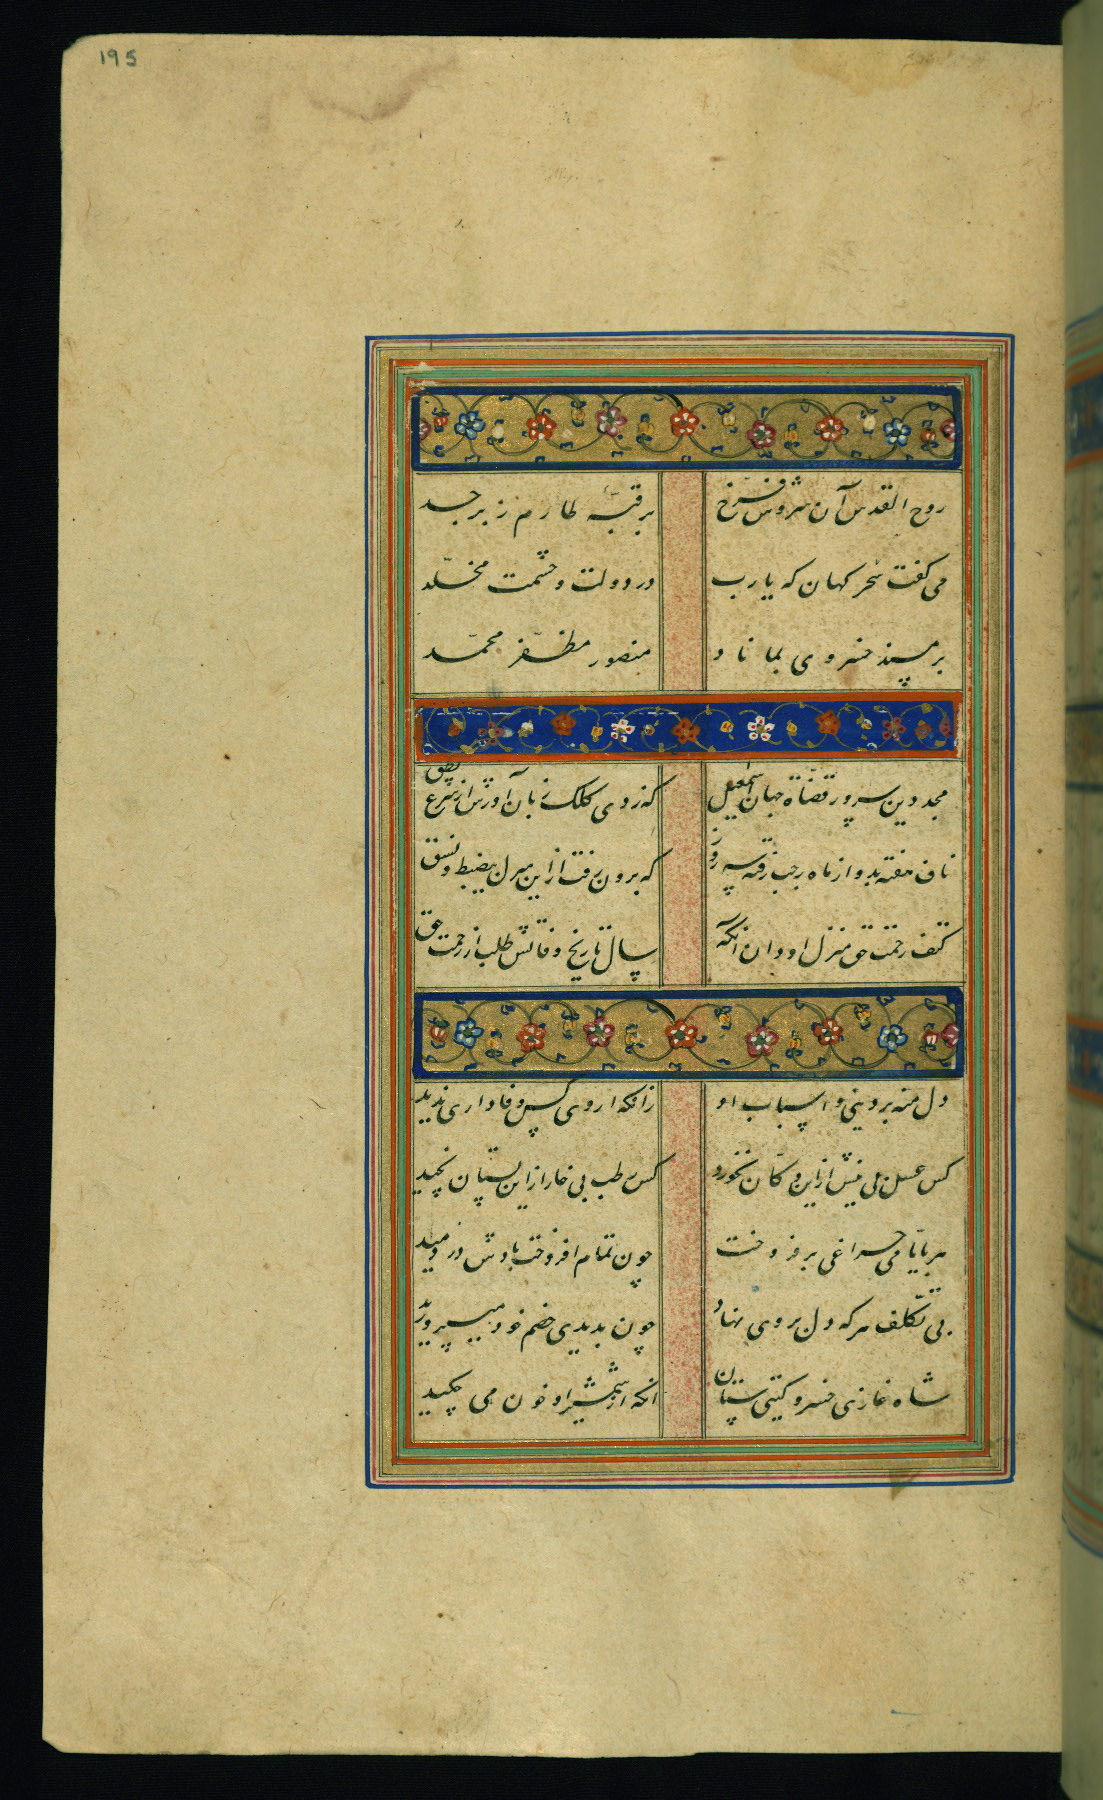 195
روح القدس آن سروش فرّخ بر قبّهٔ طارم زبرجد
می گفت سحر کهان که یا رب در دولت و حشمت مخلّد
بر مسند خسروی بماناد منصور مظفّر محمّد
مجد دین سرور قضاة جهان اسمعیل که زدی کلک زبان آورش از شرع نطق
ناف هفته بد و از ماه رجب رفته سه روز که برون رفت از این منزل بی ضبط و نسق
کنف رحمت حق منزل او دان آنگه سال تاریخ وفاتش طلب از رحمت حق
دل منه بر دینی و اسباب او زانکه از وی کس وفاداری ندید
کس عسل بی نیش از این دکّان نخورد کس رطب بی خار از این بستان نچید
هر بایّامی چراغی بر فروخت چون تمام افروخت بادش در دمید
بی تکلّف هر که دل بر وی نهاد چون بدیدی خصم خود می پرورید
شاه غازی خسرو گیتی ستان آنکه از شمشیر او خون می چکید